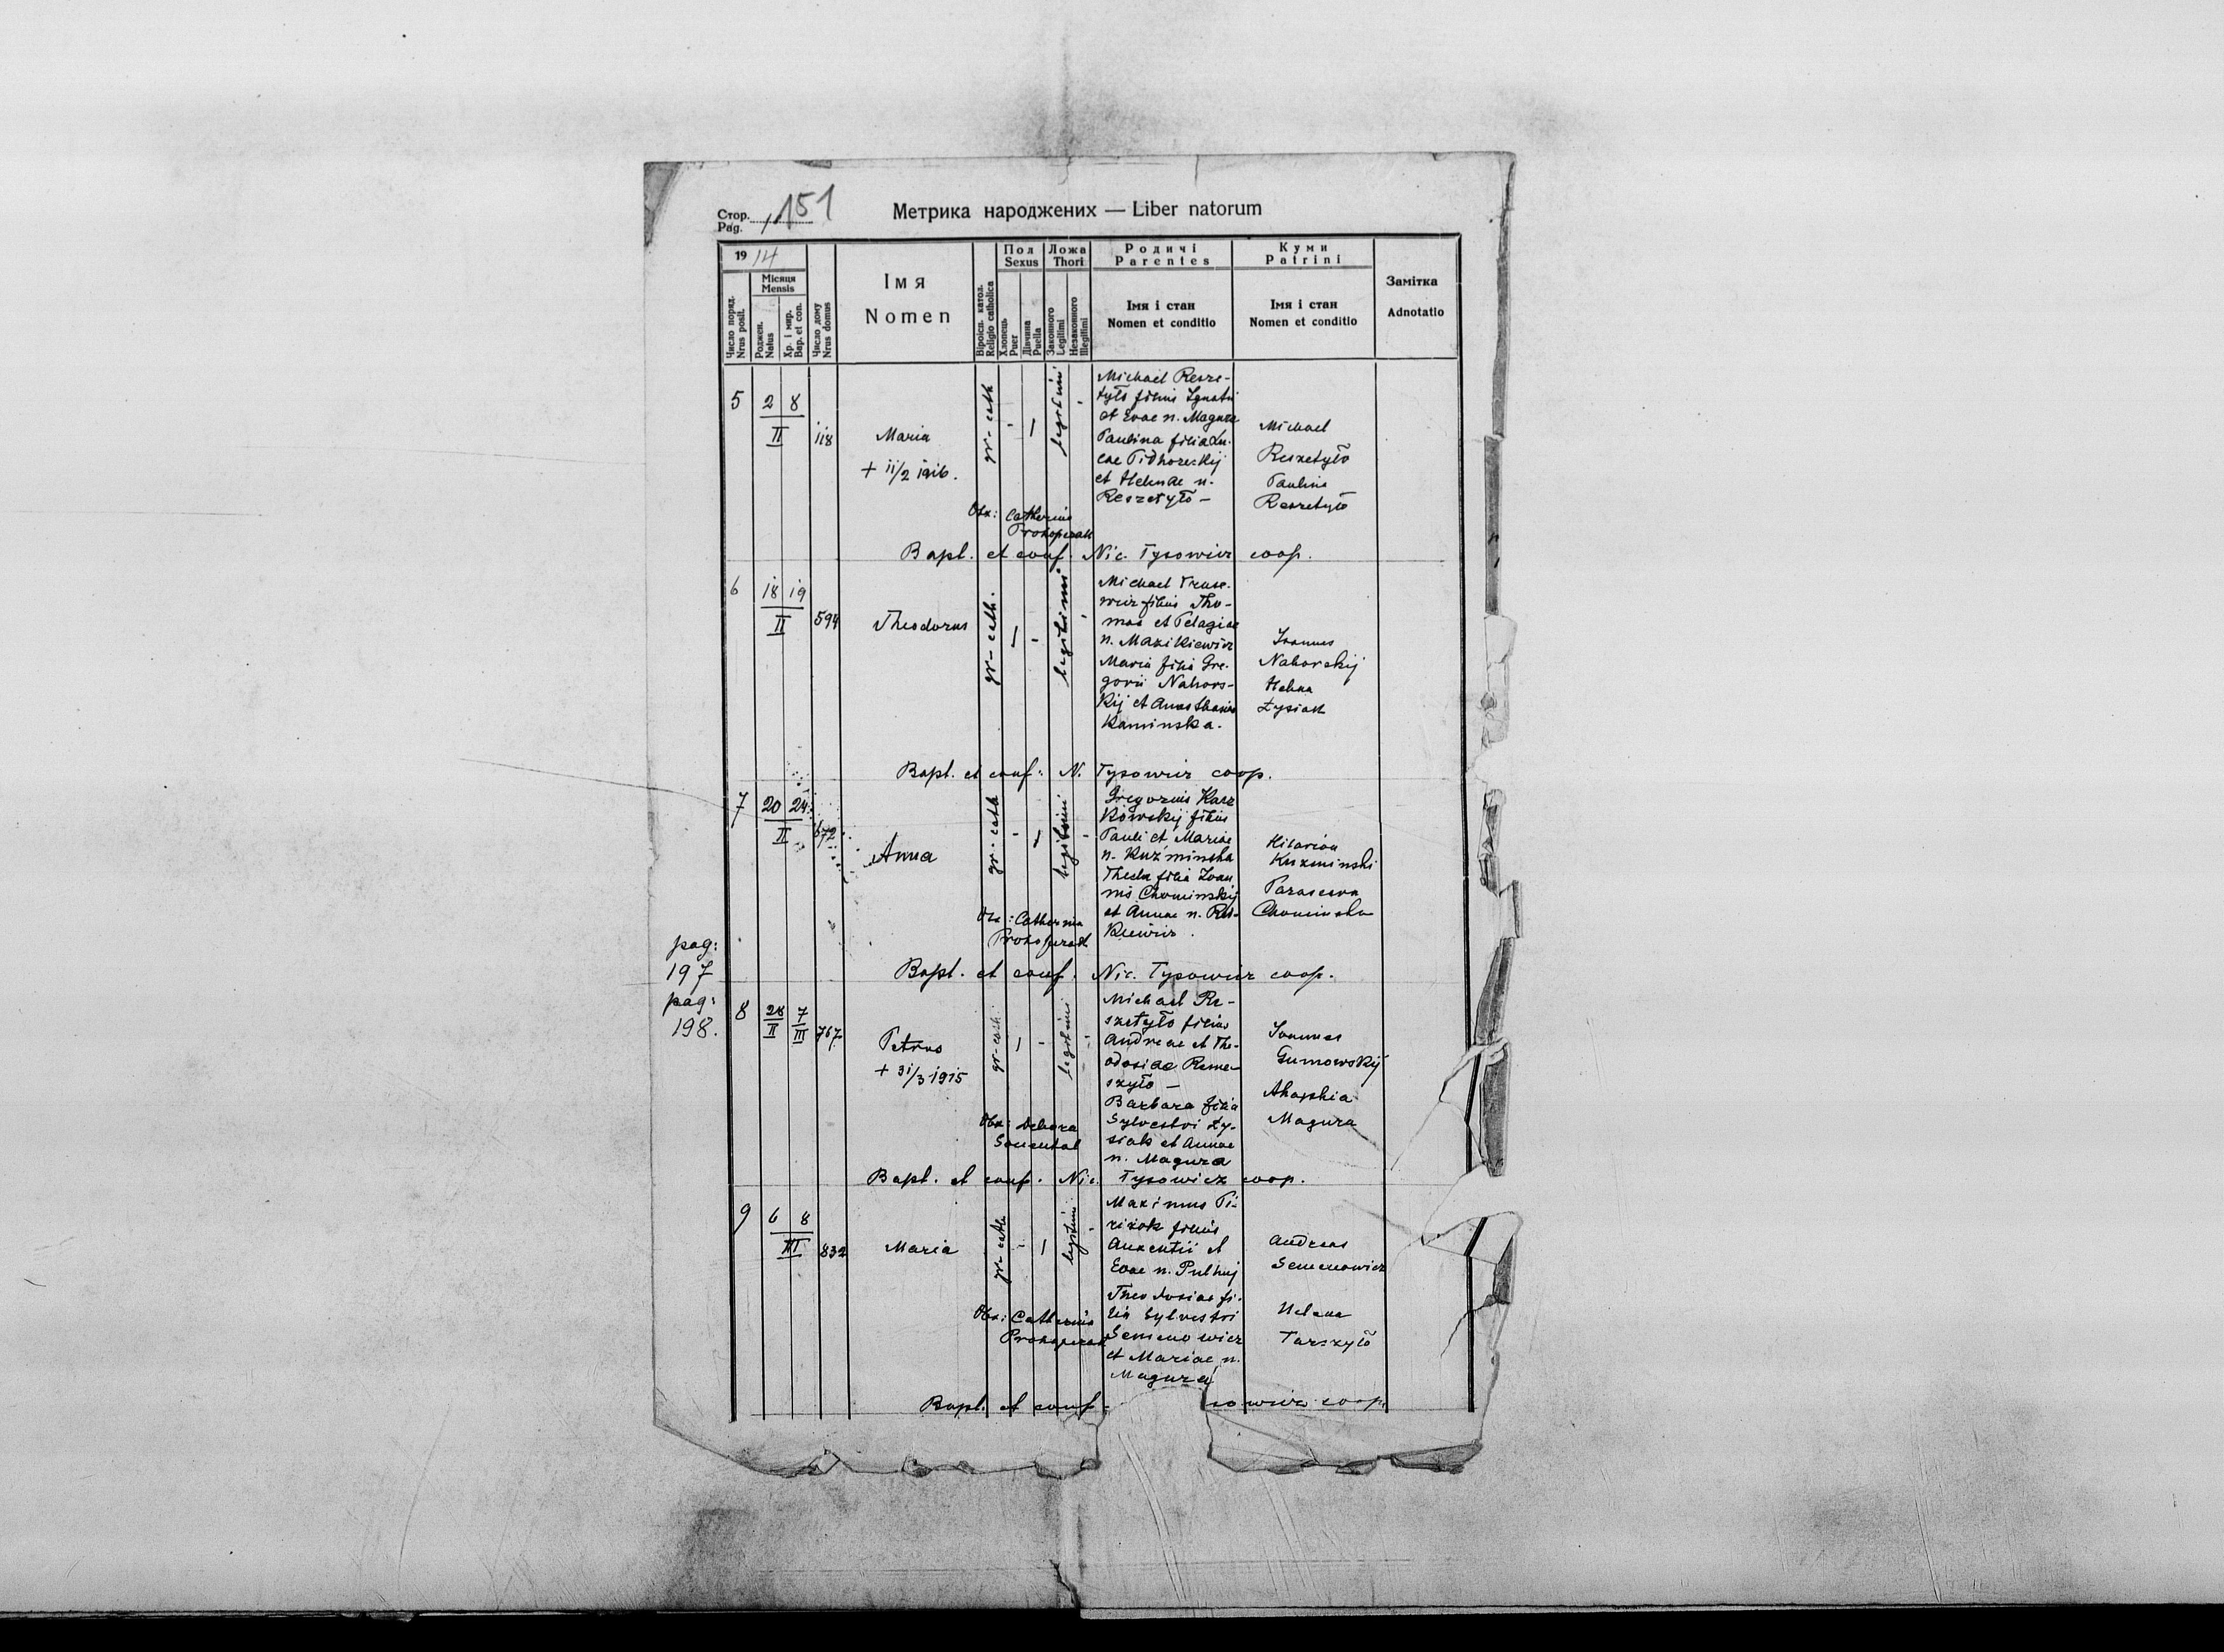 Стор. Pag. 151
Метрика народжених — Liber natorum
19 14
Місяця
Mensis
Число поряд.
Nrus posit.
Роджен.
Natus
Хр. і мир.
Bap. et con.
Число дому
Nrus domus
Імя
Nomen
Віроісп. катол.
Religio catholica
Пол
Sexus
Хлопець
Puer
Дівчина
Puella
Ложа
Thori
Законного
Legitimi
Незаконного
Illegitimi
Родичі
Parentes
Імя і стан
Nomen et conditio
Куми
Patrini
Імя і стан
Nomen et conditio
Замітка
Adnotatio
5
2 8
II
118
Maria
+ 11/2 1916.
gr-cath
- I
legitimi
-
Michael Resze-
tyło filius Ignatii
et Evae n. Magura
Paulina filia Lu-
cae Pidhoreckij
et Helenae n.
Reszetyło —
Michael
Reszetyło
Paulina
Reszetyło
Obs: Catherina
Prokopczak
Bapt. et conf. Nic. Tysowicz coop.
6
18 19
II
594
Theodorus
gr-cath.
I -
legitimi
-
Michael
filius Tho-
mae et Pelagiae
n. Mazikiewicz
Maria filia Gre-
gorii Nahors-
kij et Anasthasiae
Kaminska.
Joannes
Nahorskij
Helena
Łysiak
Bapt. et conf. N. Tysowicz coop.
7
20 24
II
672
Anna
gr-cath
- I
legitimi
-
Gregorius Kacz
kowskij filius
Pauli et Mariae
n. Kuźminska
Thecla filia Joan
nis Chominskij
et Annae n.
Hilarion
Kuzminski
Parasceva
Chominska
Obs: Catherina
Prokopczak
Bapt. et conf. Nic. Tysowicz coop.
pag:
197
pag:
198.
8
28 7
II III
767
Petrus
+ 31/3 1915
gr-cath
I -
legitimi
-
Michael Re-
szetyło filius
Andreae et The-
odosiae Reme-
szyło —
Barbara filia
Sylvestri Ły-
siak et Annae
n. Magura
Joannes
Gumowskij
Ahaphia
Magura
Obs: Debora
Bapt. et conf. Nic. Tysowicz coop.
9
6 8
III
832
Maria
gr-cath
- I
legitimi
-
Maximus Pi-
rizok filius
Auxentii et
Evae n.
Theodosiae fi-
lia Sylvestri
Semenowicz
et Mariae n.
Magura
Andreas
Semenowicz
Helena
Obs: Catherina
Prokopczak
Bapt. et conf. sowicz coop.